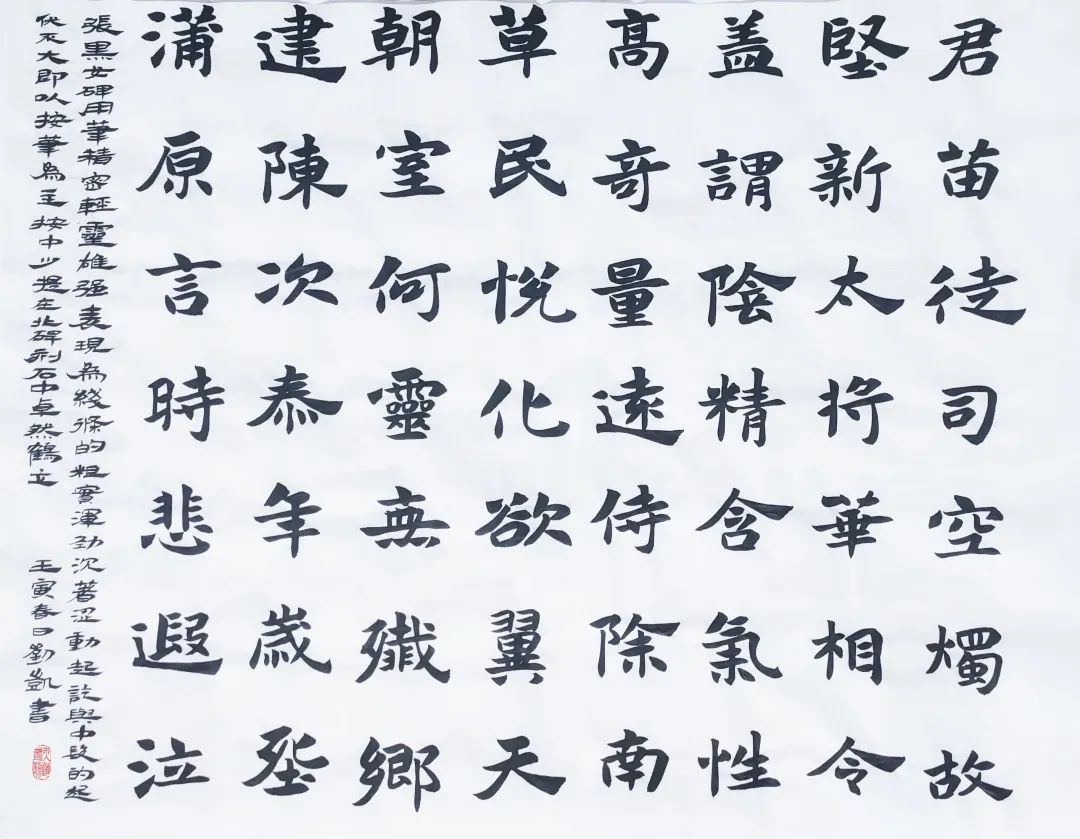 君苗徒司空燭故
堅新太将華相令
盖謂陰精含氣性
高奇量遠侍除南
草民悅化欲翼天
朝室何靈無殲鄉
建陳次恭年歲
蒲原言時悲遐泣
張黑女碑用筆精密輕靈雄强表現為綫條的粗實渾劲沉著澀動起訖與中段的起
伏不大即以按筆為主按中少提在北碑刻石中卓然鶴立 壬寅春日劉凱書